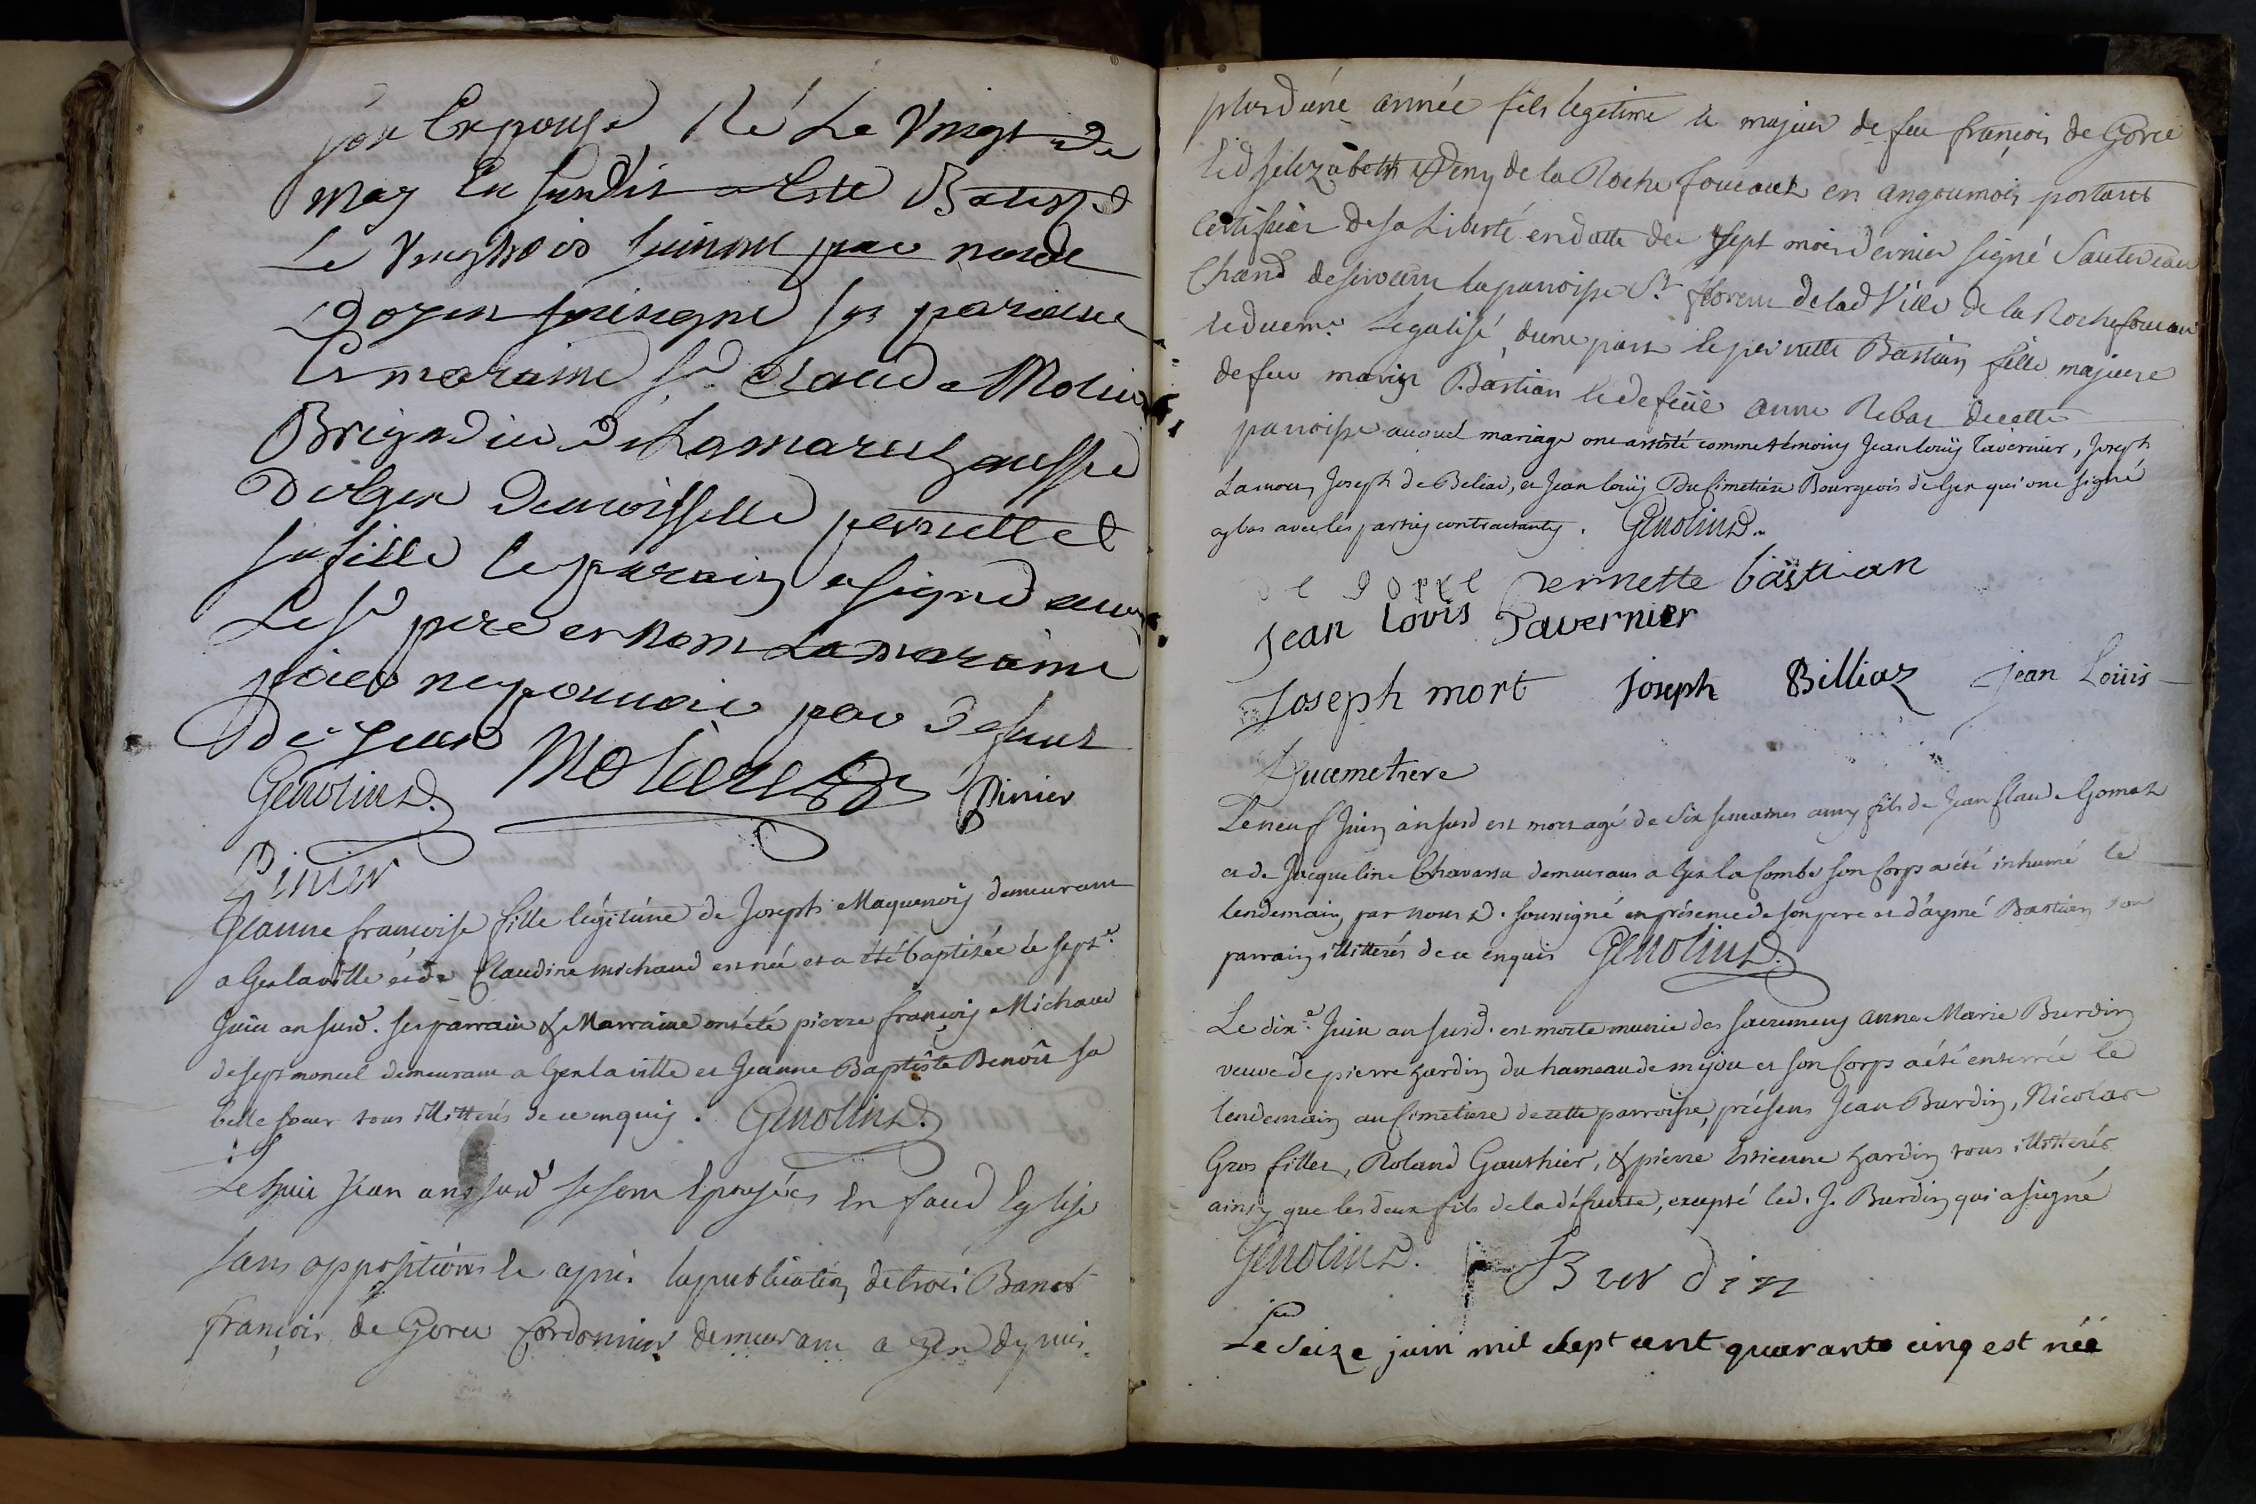 son Exponse Né Le Vingt de
May En susdit a Esté Batisé
Le Vingtrois suivant par nous
Doyen soussigné son parain
Et maraine Sr Claude Molier
Brigadier de La marechaussé
De Gex Demoisselle pernette
sa fille le parain a signé avec
Le Sr pere et non La maraine
pour ne pouvoir par Defaut
De yeux
Genolin D. Molier Pinier
Pinier
Jeanne francoise fille légitime de Joseph Maquenoy demeurant
a Gex la ville et de Claudine Michaud est née et a été baptisée le sept.e
Juin an susd. ses parrain & Marraine ont été pierre françois Michaud
de septmoncel demeurant a Gex la ville et Jeanne Baptiste Benoit sa
belle soeur tous illitterés de ce enquis. Genolin D.
Le huit Jean an susd se sont Epousées En face d Eglise
sans oppositions et après la publication de trois Bancs
françois de Gorce Cordonnier demeurant a Gex depuis
plus d'une année fils légitime et majeur de feu françois de Gorce
et d'Elizabeth Deny de la Roche foucaut en angoumois portant
certificat de sa Liberté en datte du sept mois dernier signé Sautereau
Chand deservant la paroisse St florent de lad Ville de la Rochefoucau
et duem.t Legalisé, d'une part et pernette Bastian fille majeure
de feu Bastian et de feüe anne Rebat de cette
paroisse auquel mariage ont assisté comme témoins Jean louis Tavernier, Joseph
Lamort, Joseph de Beliad, et Jean louis Du Cimetiere Bourgeois de Gex qui ont signé
cy bas avec les parties contractantes. Genolin D.
de gorce pernette bastian
Jean Lovis Tavernier
Joseph mort joseph Billiaz jean Loüis
Ducemetiere
Le neuf Juin an susd est mort agé de six semaines amy fils de Jean Claude Gomet
et de Jacqueline Chavanu demeurans a Gex la Combe son Corps a été inhumé le
lendemain par nous D. soussigné en présence de son pere et d'aymé Bastian son
parrain illitterés de ce enquis Genolin D.
Le dix.e Juin an susd. est morte munie des sacremens anne Marie Burdin
veuve de pierre hardin du hameau de mijou et son Corps a été enterrée le
lendemain au Cimetiere de cette parroisse, présens Jean Burdin, Nicolas
Gros fillet, Roland Gauthier, & pierre Estienne hardin tous illitterés
ainsy que les deux fils de la défunte, excepté led. J. Burdin qui a signé
Genolin D. J Bur din
Le seize juin mil sept cent quarante cinq est née